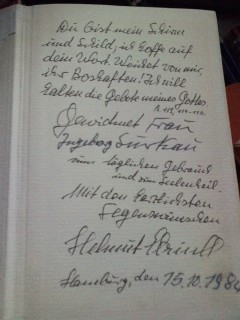 Du bist mein Schirm
und Schild, ich hoffe auf
dein Wort. Weichet von mir,
ihr Boshaften! Ich will
halten die Gebote meines Gottes.
Gewidmet Frau
Ingeborg
zum täglichen Gebrauch
und zum Seelenheil.
Mit den herzlichsten
Segenswünschen
Helmut
Hamburg, den 15.10.1984